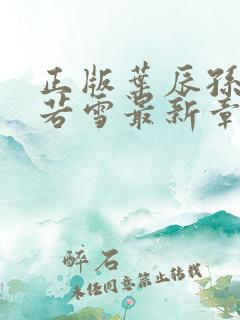 正版葉辰孫
若雪最新章
醉石
未经同意禁止转载